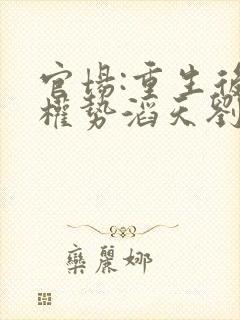 官場:重生後
權勢滔天劉
欒麗娜